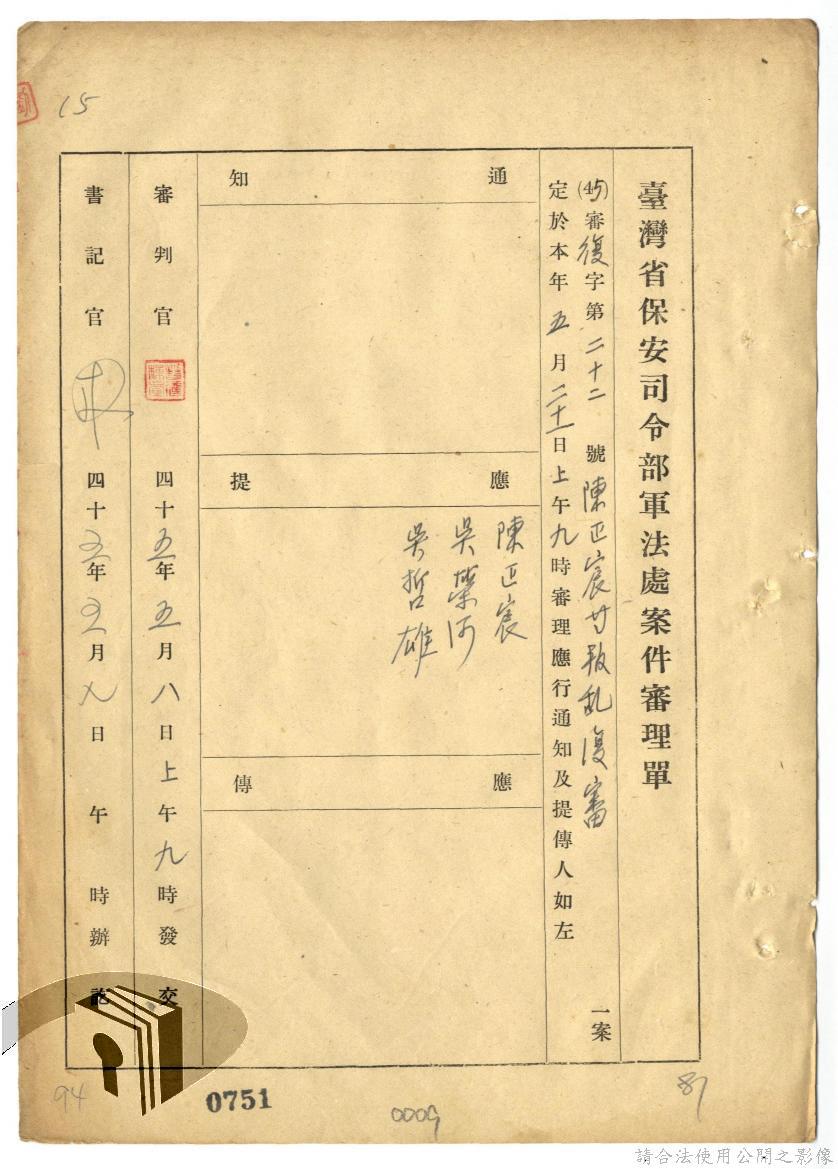 15
臺灣省保安司令部軍法處案件審理單
(45)審復字第二十二號陳正宸等叛乱復審一案
定於本年五月二十一日上午九時審理應行通知及提傳人如左
通知
應提
陳正宸
吳榮河
吳哲雄
應傳
審判官 四十五年五月八日上午九時發交
書記官 四十五年五月八日 午 時辦訖
94
0751
0009
81
請合法使用公開之影像